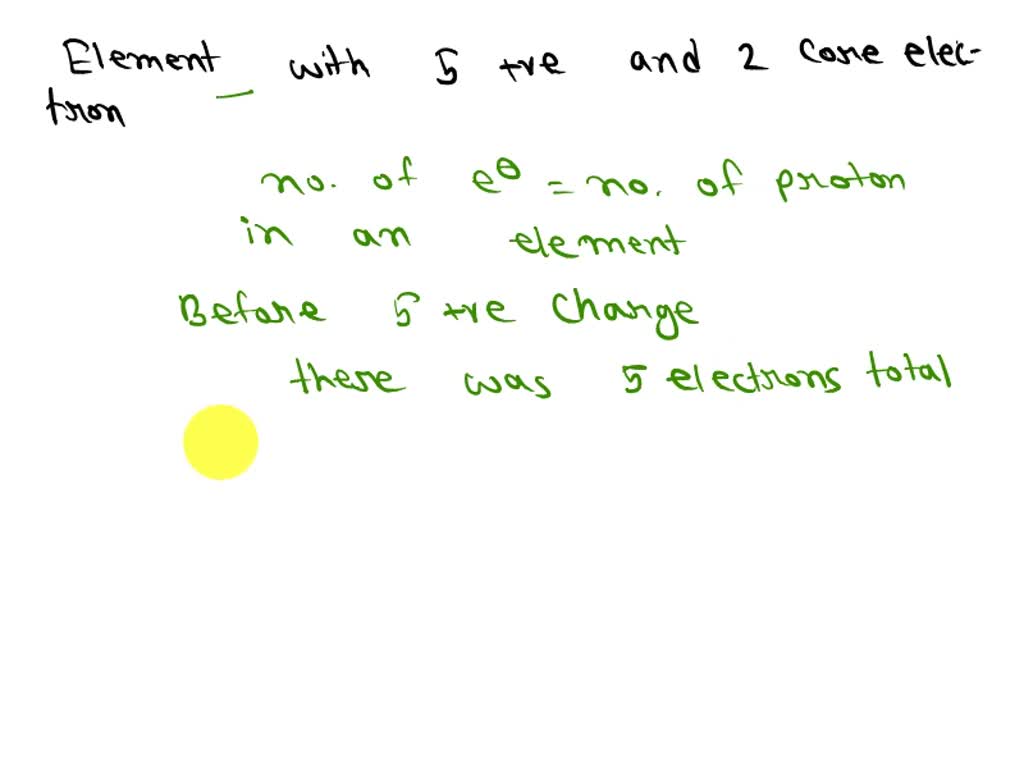 Element with 5 +ve and 2 core elec-
tron
no. of e⊖ = no. of proton
in an element
Before 5 +ve Charge
there was 5 electrons total